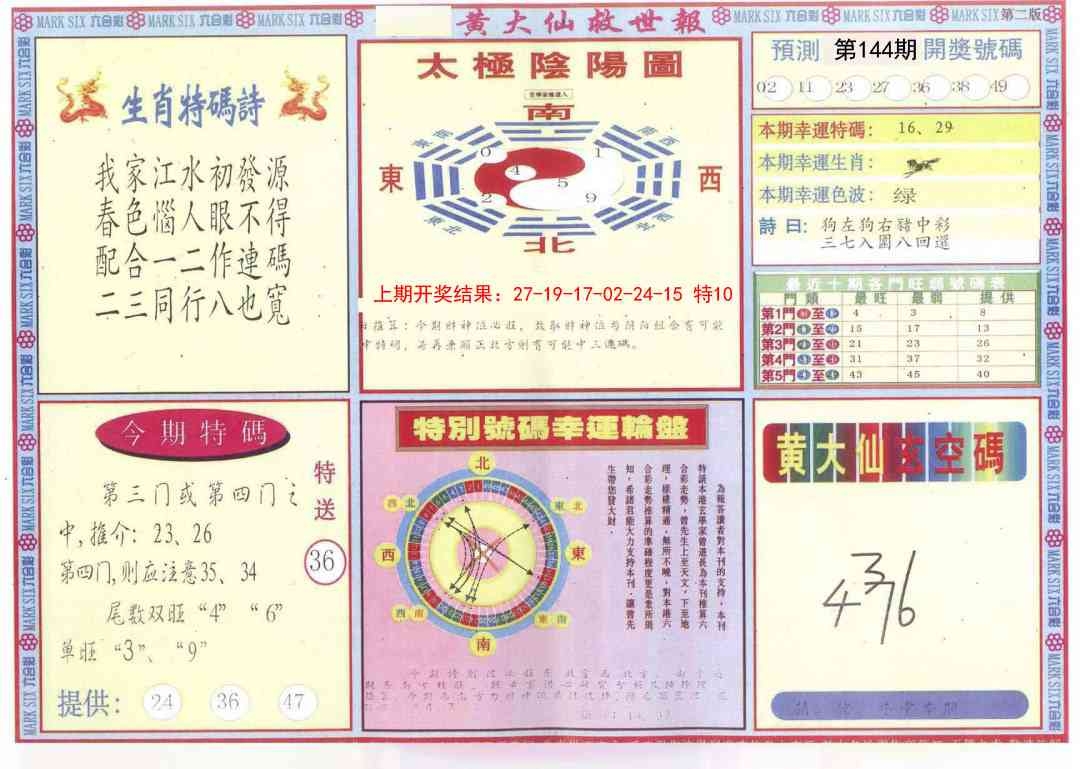 MARK SIX 六合彩 MARK SIX 六合彩 MARK SIX 六合彩
黄大仙救世報
MARK SIX 六合彩 MARK SIX 六合彩 MARK SIX 六合彩
第二版
生肖特碼詩
我家江水初發源
春色惱人眼不得
配合一二作連碼
二三同行八也寬
太極陰陽圖
南
東
西
北
東北
西北
0
1
4
5
2
9
上期开奖结果：27-19-17-02-24-15 特10
預測 第144期 開獎號碼
02 11 23 27 36 38 49
本期幸運特碼： 16、29
本期幸運生肖：
本期幸運色波： 绿
詩曰： 狗左狗右豬中彩
三七入圍八回選
最近十期各門旺弱號碼表
門類 最旺 最弱 提供
第1門 至 4 3 8
第2門 至 15 17 13
第3門 至 21 23 26
第4門 至 31 37 32
第5門 至 43 45 40
今期特碼
第三门或第四门之
中,推介：23、26
第四门,则应注意35、34
尾数双旺“4”“6”
单旺“3”、“9”
特送
36
提供： 24 36 47
特別號碼幸運輪盤
北
東北
東
東南
南
西南
西
西北
為報答讀者對本刊的支持，本刊
特請本港玄學家曾道長為本刊推算六
合彩走勢，曾先生上至天文，下至地
理，樣樣精通，無所不曉，對本港六
合彩走勢推算的準確程度更是衆所周
知，希諸君能大力支持本刊，讓曾先
生帶您發大財．
黄大仙玄空碼
4376